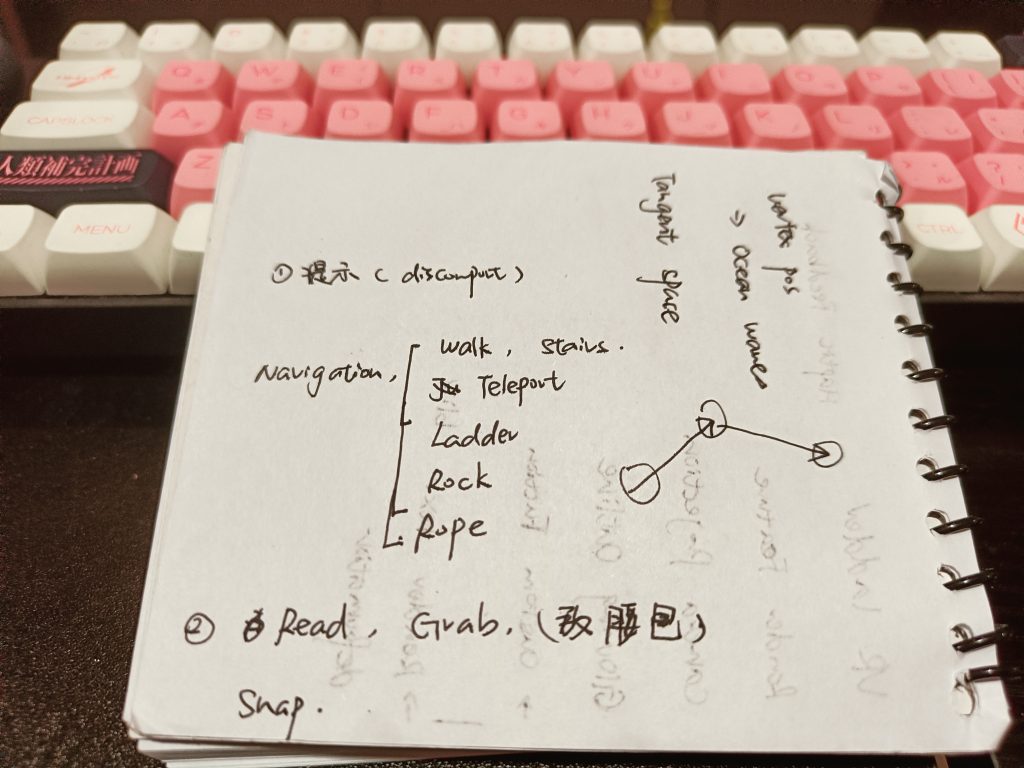 Q W E R T Y U I O P
CAPSLOCK A S D F G H J K L
人類補完計画 Z
MENU
CTRL
Tangent space
vertex pos
⇒ ocean waves
① 提示 (discomput)
Navigation,
walk, stairs.
Teleport
Ladder
Rock
Rope
② Read, Grab, (放腰包)
Snap.